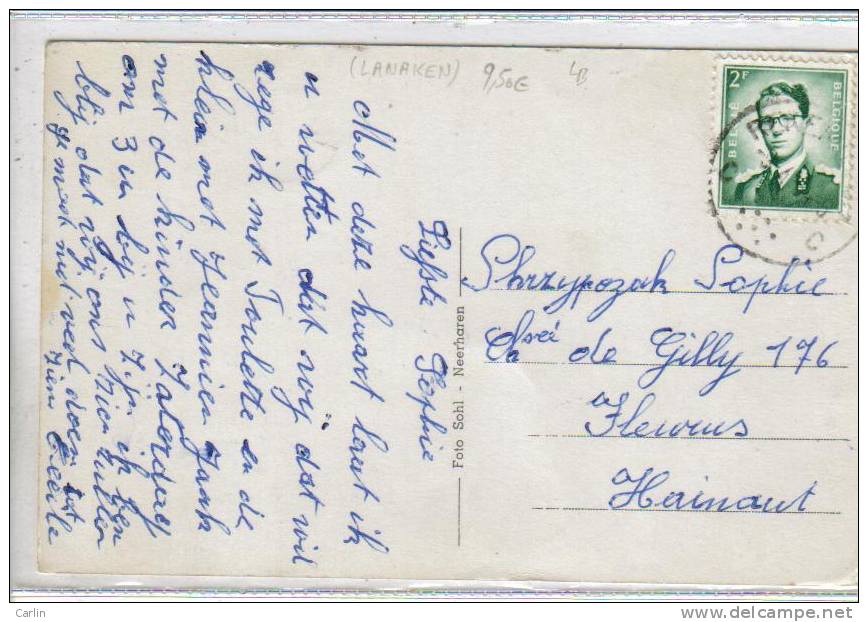 (LANAKEN) 9,50€ LB
2F
BELGIË BELGIQUE
Liefste Sophie
Met deze kaart laat ik
u wetten dat wij dat wil
zege ik met Toulette en de
klein met Jeannien Jank
met de kinder Zaterdag
om 3 u bij u zijn ik ben
blij dat wij ons zien zullen
je moet niet veel doen
Ziem Cecile
Foto Sohl - Neerharen
Skrzypozak Sophie
Ch sée de Gilly 176
Fleurus
Hainaut
Carlin
http://www.delcampe.net